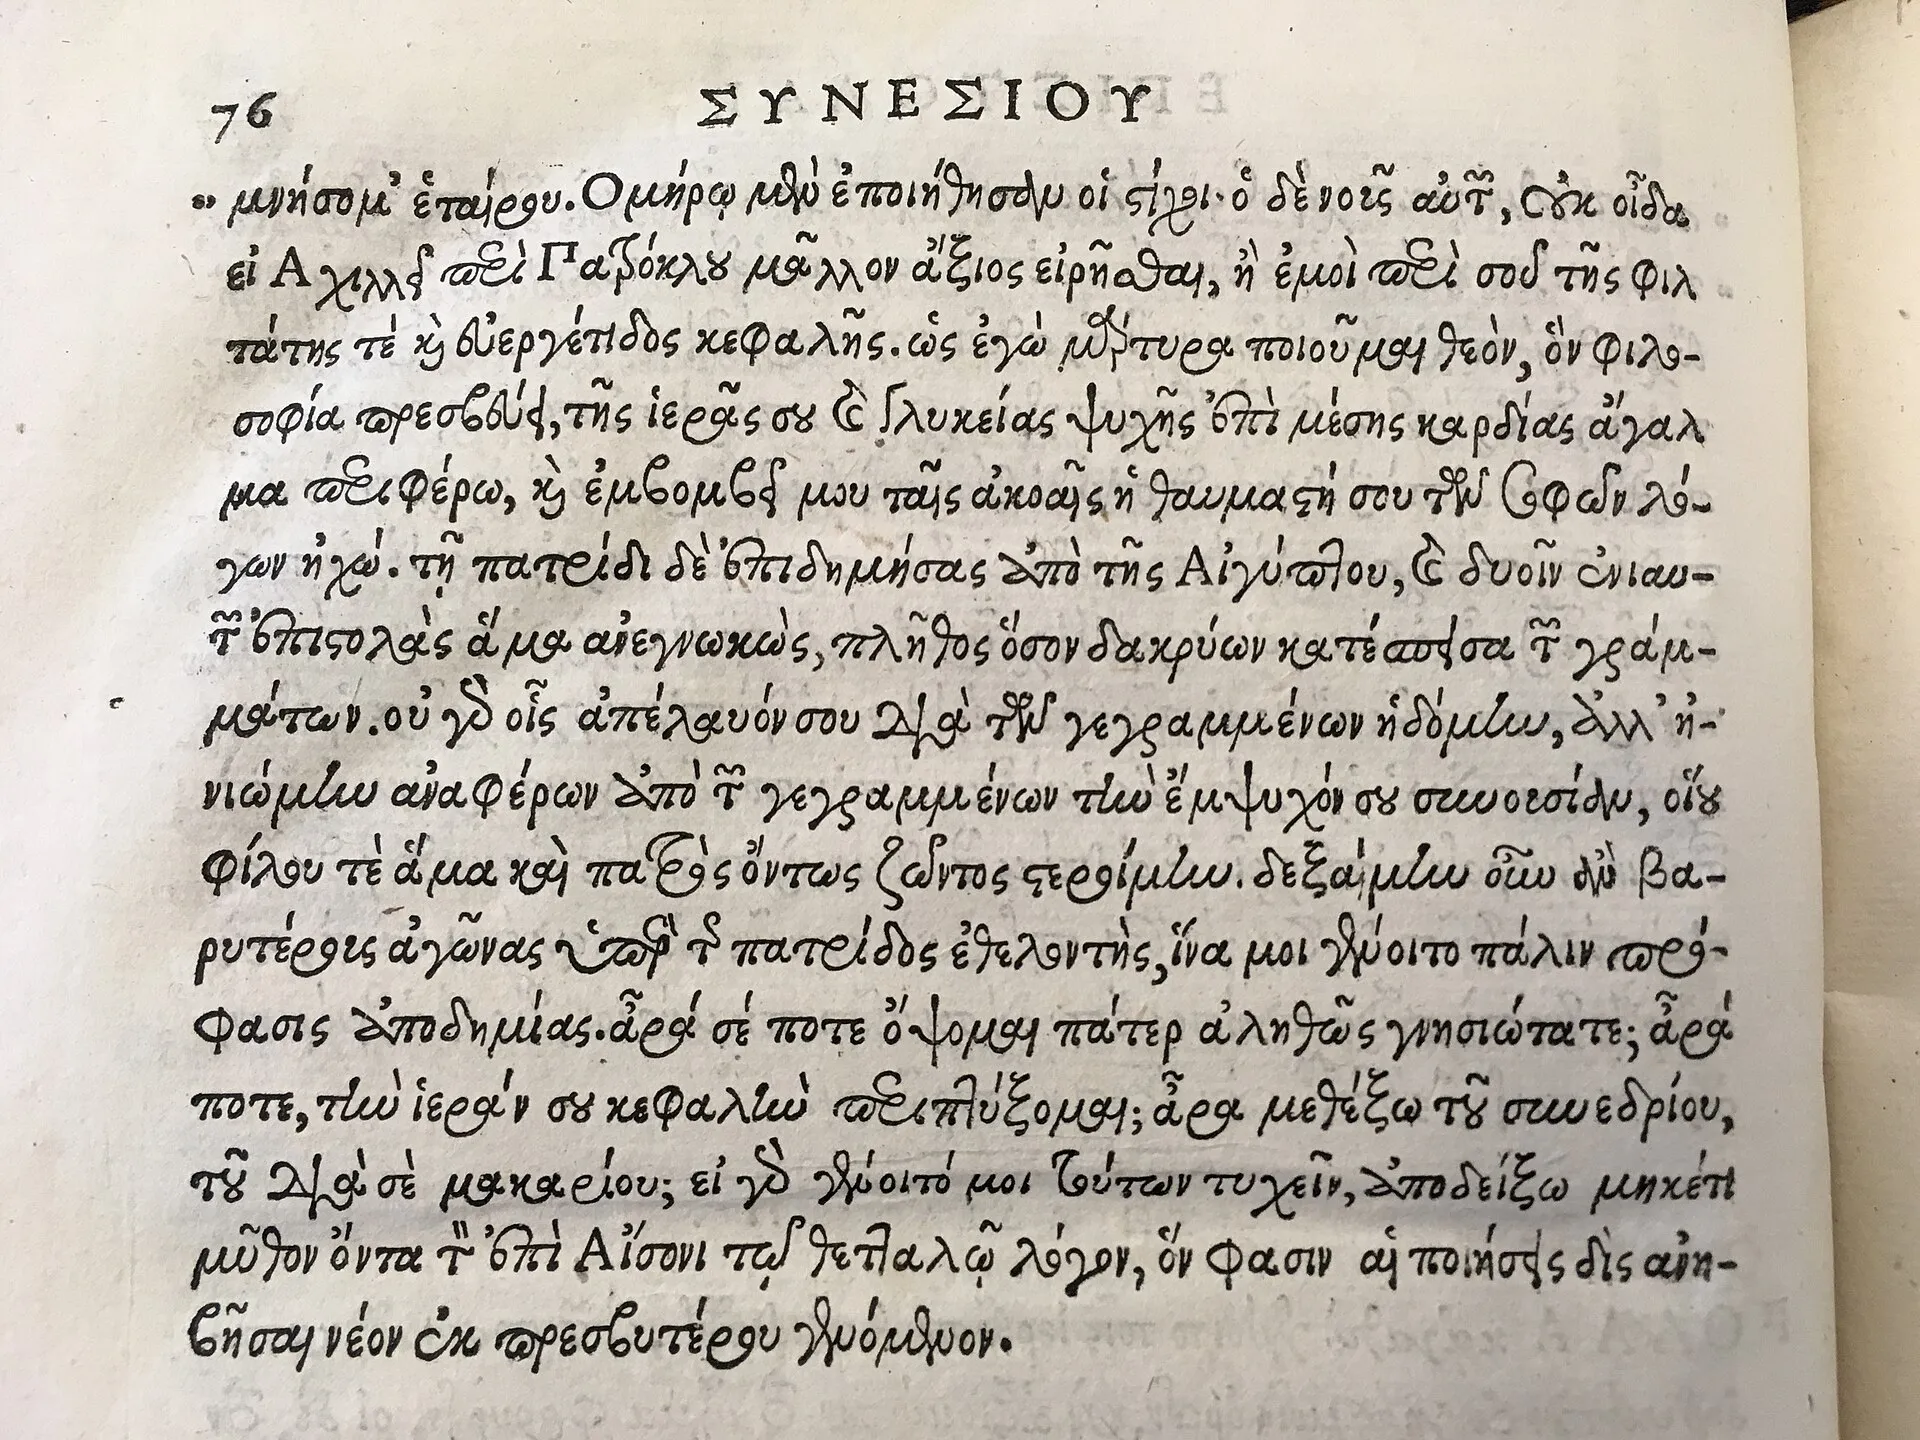 76 ΣΥΝΕΣΙΟΥ
„ μνήσομ' ἑταίρου. Ομήρῳ μὲν ἐποιήθησαν οἱ στίχοι· ὁ δὲ νοῦς αὐτῶν, οὐκ οἶδα
εἰ Αχιλλεῖ περὶ Πατρόκλου μᾶλλον ἄξιος εἰρῆσθαι, ἢ ἐμοὶ περὶ σοῦ τῆς φιλ
τάτης τὲ καὶ εὐεργέτιδος κεφαλῆς. ὡς ἐγὼ μάρτυρα ποιοῦμαι θεὸν, ὃν φιλο-
σοφία πρεσβεύει, τῆς ἱερᾶς σου καὶ γλυκείας ψυχῆς ἐπὶ μέσης καρδίας ἄγαλ
μα περιφέρω, καὶ ἐμβομβεῖ μου ταῖς ἀκοαῖς ἡ θαυμαστή σου τῶν σοφῶν λό-
γων ἠχώ. τῇ πατρίδι δὲ ἐπιδημήσας ἀπὸ τῆς Αἰγύπτου, καὶ δυοῖν ἐνιαυ-
τῶν ἐπιστολὰς ἅμα ἀνεγνωκὼς, πλῆθος ὅσον δακρύων κατέσπεισα τῶν γραμ-
μάτων. οὐ γὰρ οἷς ἀπέλαυόν σου διὰ τῶν γεγραμμένων ἡδόμην, ἀλλ' ἠ-
νιώμην ἀναφέρων ἀπὸ τῶν γεγραμμένων τὴν ἔμψυχόν σου συνουσίαν, οἵου
φίλου τὲ ἅμα καὶ πατρὸς ὄντως ζῶντος στεροίμην. δεξαίμην οὖν ἂν βα-
ρυτέροις ἀγῶνας ὑπὲρ τῆς πατρίδος ἐθελοντὴς, ἵνα μοι γένοιτο πάλιν πρό-
φασις ἀποδημίας. ἆρά σέ ποτε ὄψομαι πάτερ ἀληθῶς γνησιώτατε; ἆρά
ποτε, τὴν ἱεράν σου κεφαλὴν περιπτύξομαι; ἆρα μεθέξω τοῦ συνεδρίου,
τοῦ διὰ σὲ μακαρίου; εἰ γὰρ γένοιτό μοι τούτων τυχεῖν, ἀποδείξω μηκέτι
μῦθον ὄντα τὸν ἐπὶ Αἴσονι τῷ θετταλῷ λόγον, ὅν φασιν αἱ ποιήσεις δὶς ἀνη-
βῆσαι νέον ἐκ πρεσβυτέρου γενόμενον.